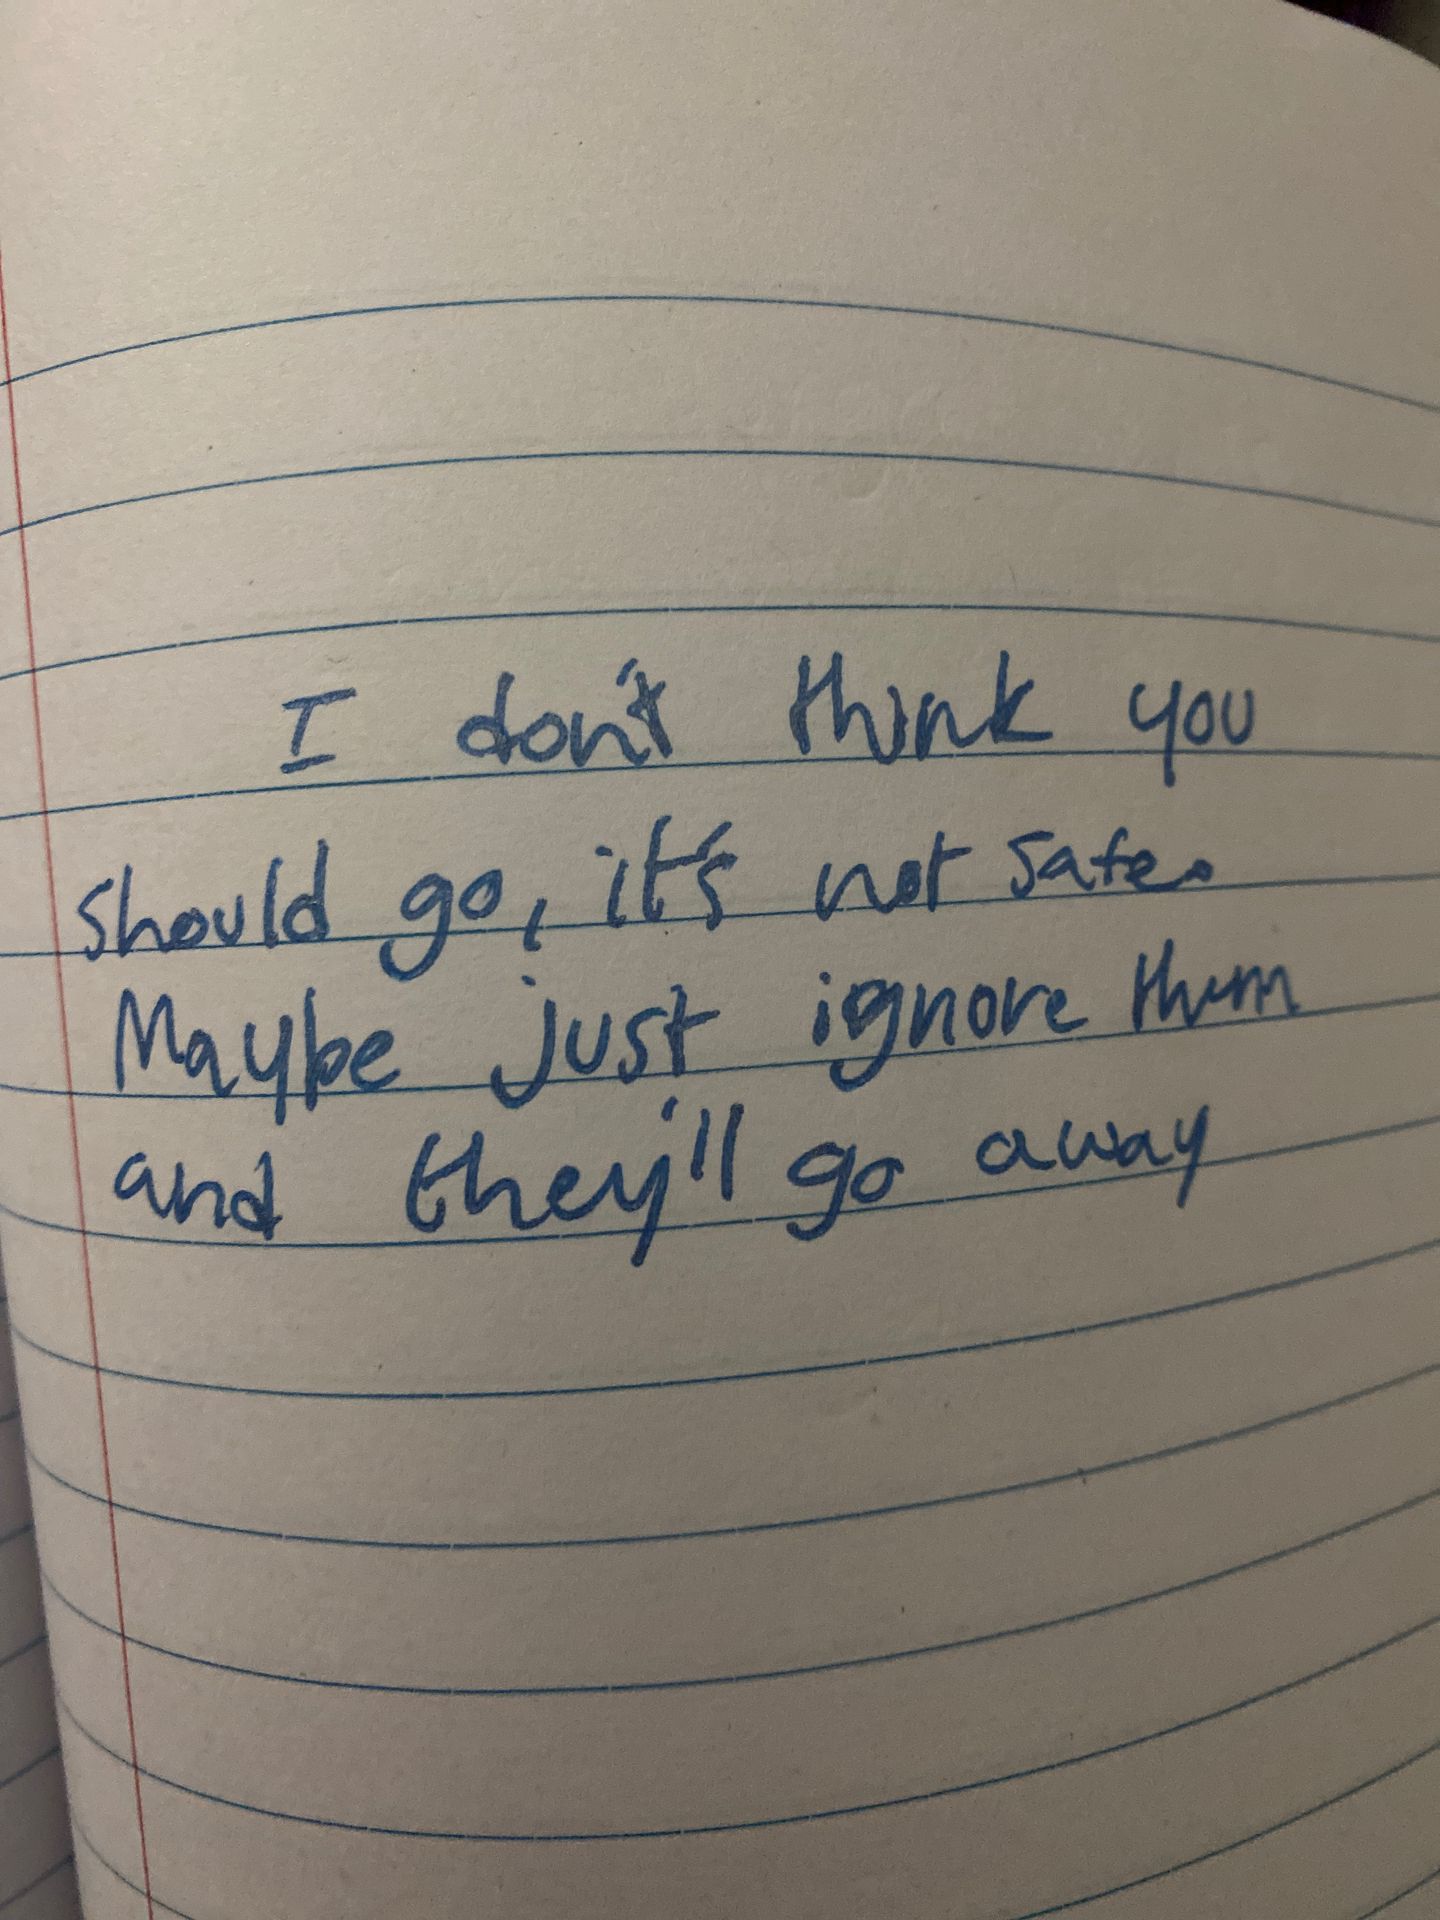 I don't think you
should go, it's not safe.
Maybe just ignore them
and they'll go away